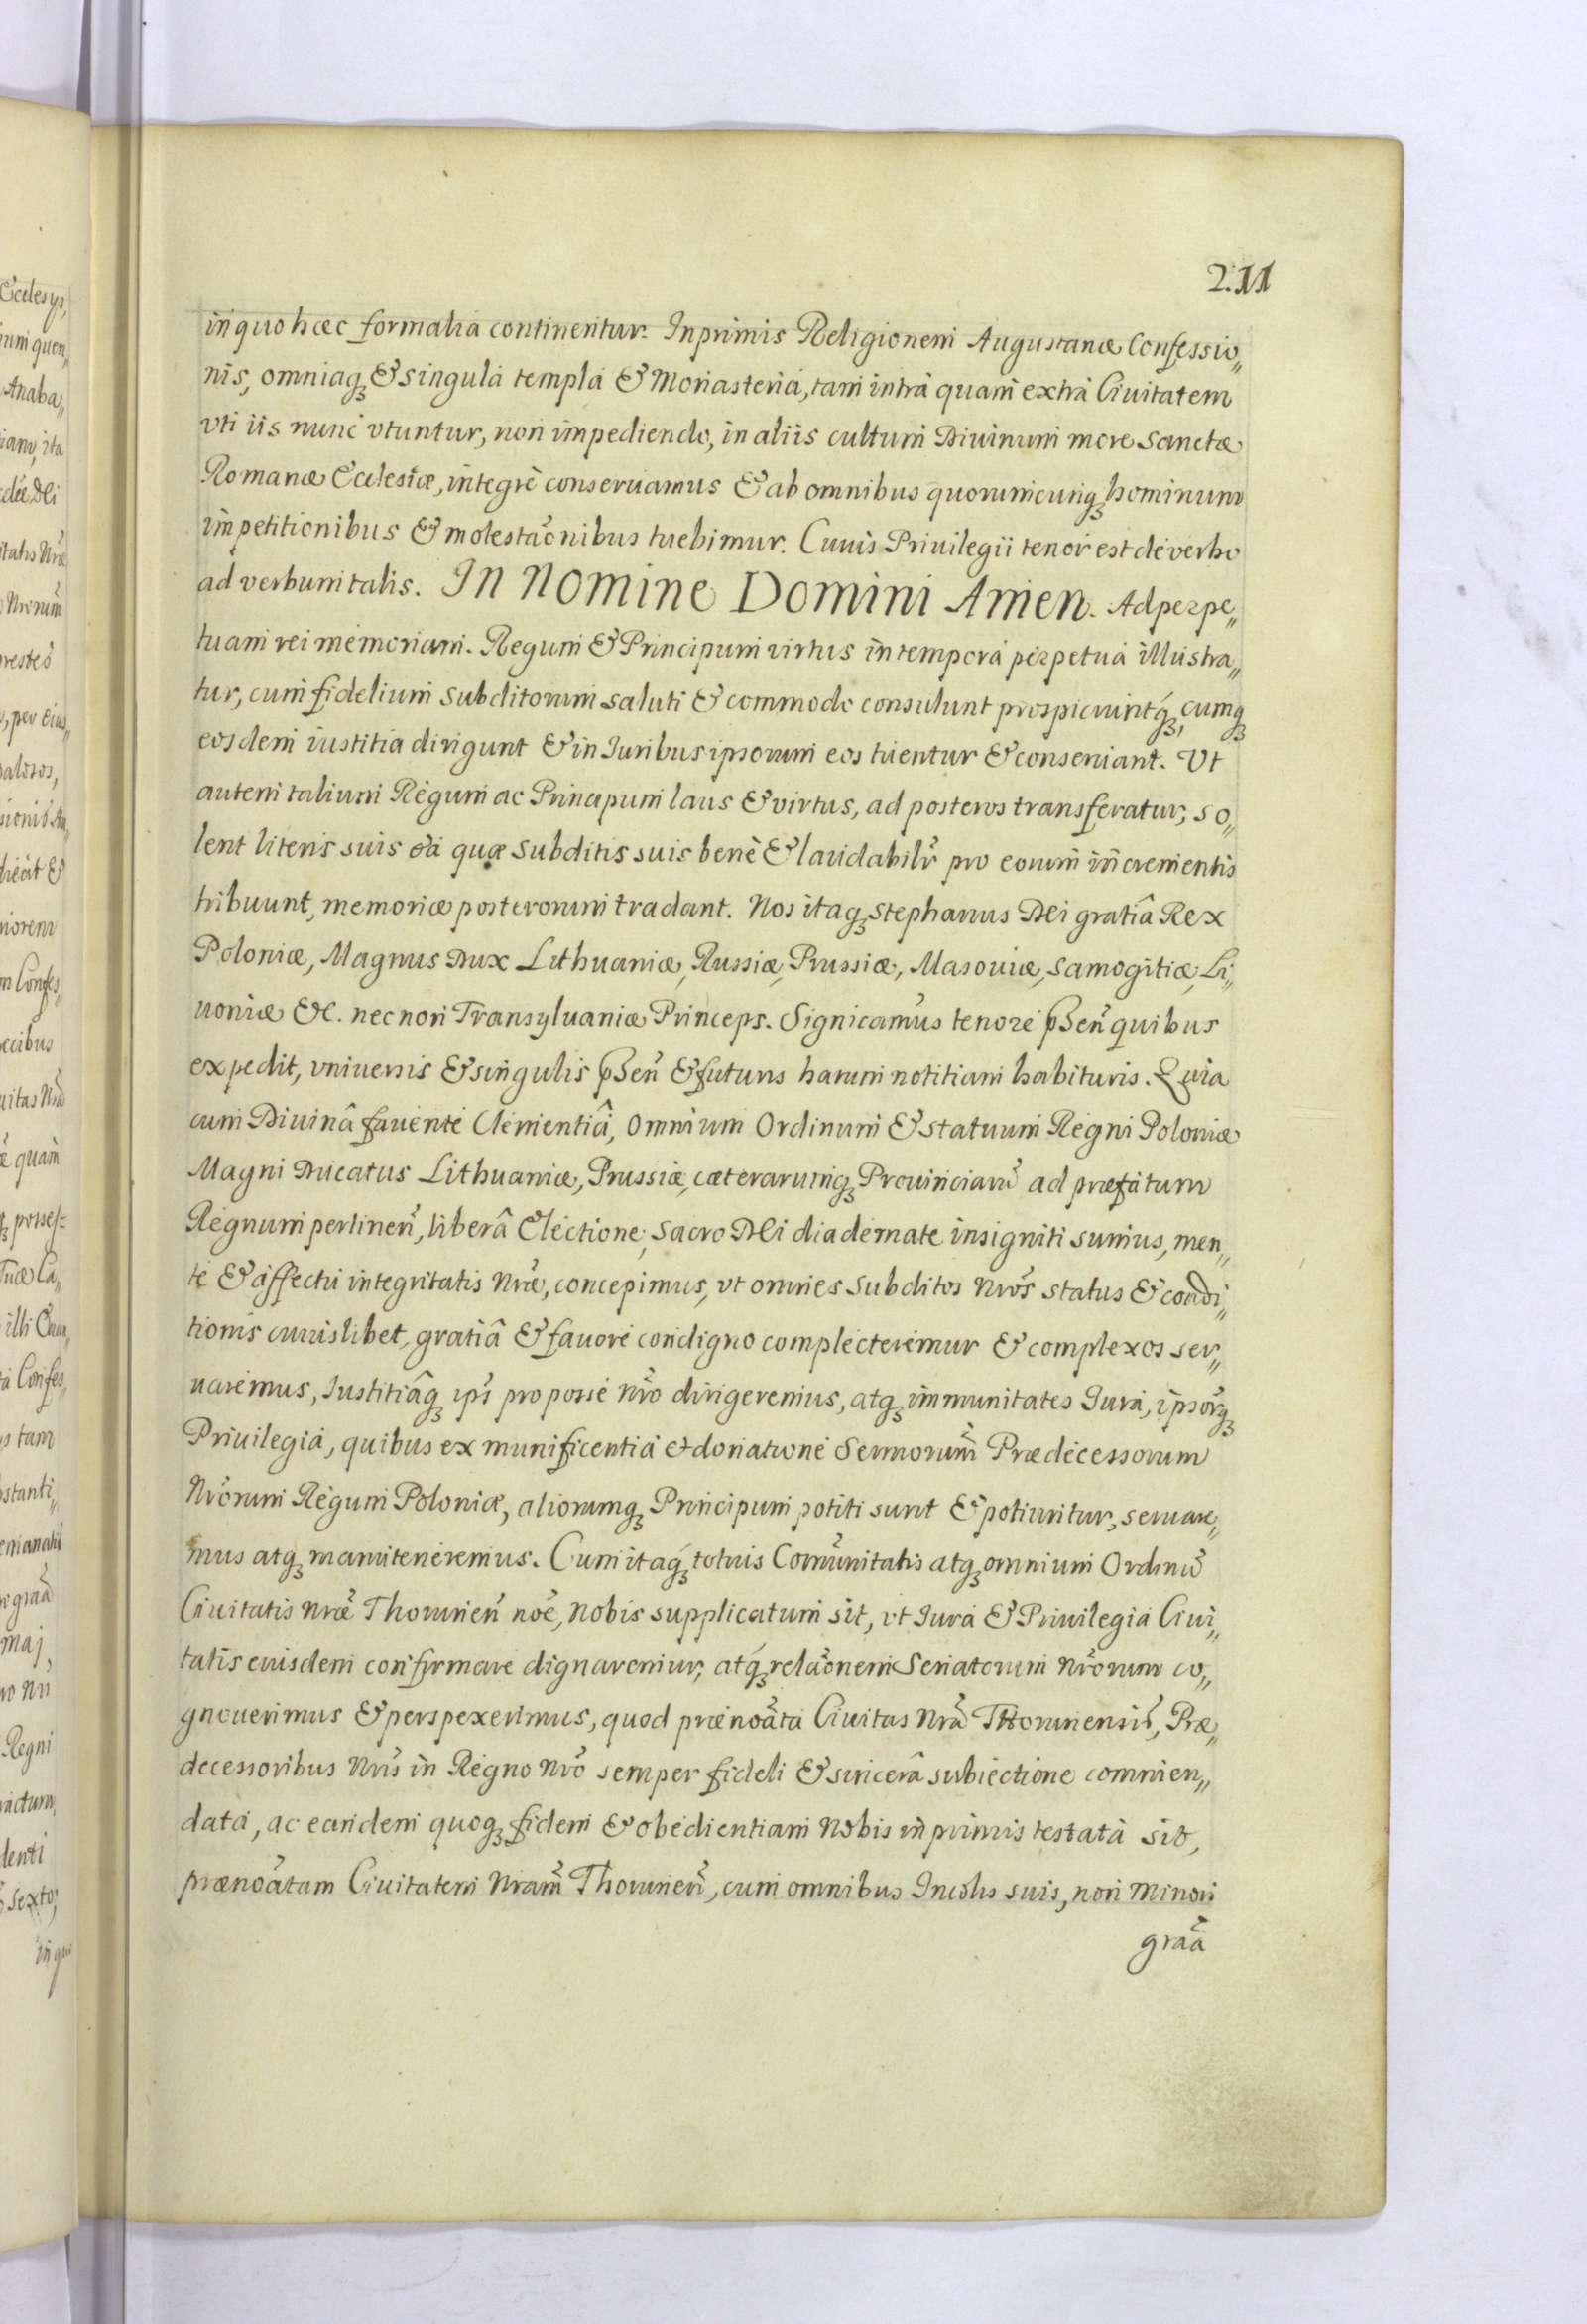 2.11
in quo hæc formalia continentur. Inprimis Religionem Augustanæ Confessio„
nis, omniaq₃ & singula templa & Monasteria, tam intrà quam extrà Ciuitatem
vti iis nunc vtuntur, non impediendo, in aliis cultum Diuinum more Sanctæ
Romanæ Ecclesiæ, integrè conseruamus & ab omnibus quorumcunq₃ hominum
impetitionibus & molestac̃onibus tuebimur. Cuuis Priuilegii tenor est de verbo
ad verbum talis. In Nomine Domini Amen. Ad perpe„
tuam rei memoriam. Regum & Principum virtus in tempora perpetua illustra„
tur, cum fidelium subditorum saluti & commodo consulunt prospiciuntq₃, cumq₃
eosdem iustitia dirigunt & in Iuribus ipsorum eos tuentur & conseruant. Vt
autem talium Regum ac Principum laus & virtus, ad posteros transferatur, so„
lent literis suis ea quæ subditis suis benè & laudabilr̃ pro eorum incrementis
tribuunt, memoriæ posterorum tradant. Nos itaq₃ Stephanus Dei gratiâ Rex
Poloniæ, Magnus Dux Lithuaniæ, Russiæ, Prussiæ, Masouiæ, Samogitiæ, Li„
uoniæ &c. necnon Transyluaniæ Princeps. Signicamus tenore pñsen̄ quibus
expedit, vniuersis & singulis pñsen̄ & futuris harum notitiam habituris. Quia
cum Diuinâ fauente Clementiâ, omnium Ordinum & statuum Regni Poloniæ
Magni Ducatus Lithuaniæ, Prussiæ, cæterarumq₃ Prouinciarũ ad præfatum
Regnum pertinen̄, liberâ Electione, sacro Dei diademate insigniti sumus, men„
te & affectu integritatis Nræ̃, concepimus, vt omnes subditos Nrõs status & condi„
tionis cuuislibet, gratiâ & fauore condigno complecteremur & complexos ser„
uaremus, Iustitiâq₃ ips̃ pro posse nrõ dirigeremus, atq₃ immunitates Iura, ipsor̃q₃
Priuilegia, quibus ex munificentia et donatione Sermorum̃ Prædecessorum
Nrõrum Regum Poloniæ, aliorumq₃ Principum potiti sunt & potiuntur, seruare„
mus atq₃ manuteneremus. Cum itaq₃ totuis Com̃unitatis atq₃ omnium Ordinũ
Ciuitatis nræ̃ Thorunien̄ noẽ, Nobis supplicatum sit, vt Iura & Priuilegia Ciui„
tatis euisdem confirmare dignaremur, atq₃ relac̃onem Senatorum Nrõrum co„
gnouerimus & perspexerimus, quod prænoãta Ciuitas Nrã Thoruniensis̃, Præ„
decessoribus Nris̃ in Regno Nrõ semper fideli & sincerâ subiectione commen„
data, ac eandem quoq₃ fidem & obedientiam Nobis inprimis testata sit,
prænoãtam Ciuitatem Nram̃ Thorunien̄, cum omnibus Incolis suis, non Minori
graã